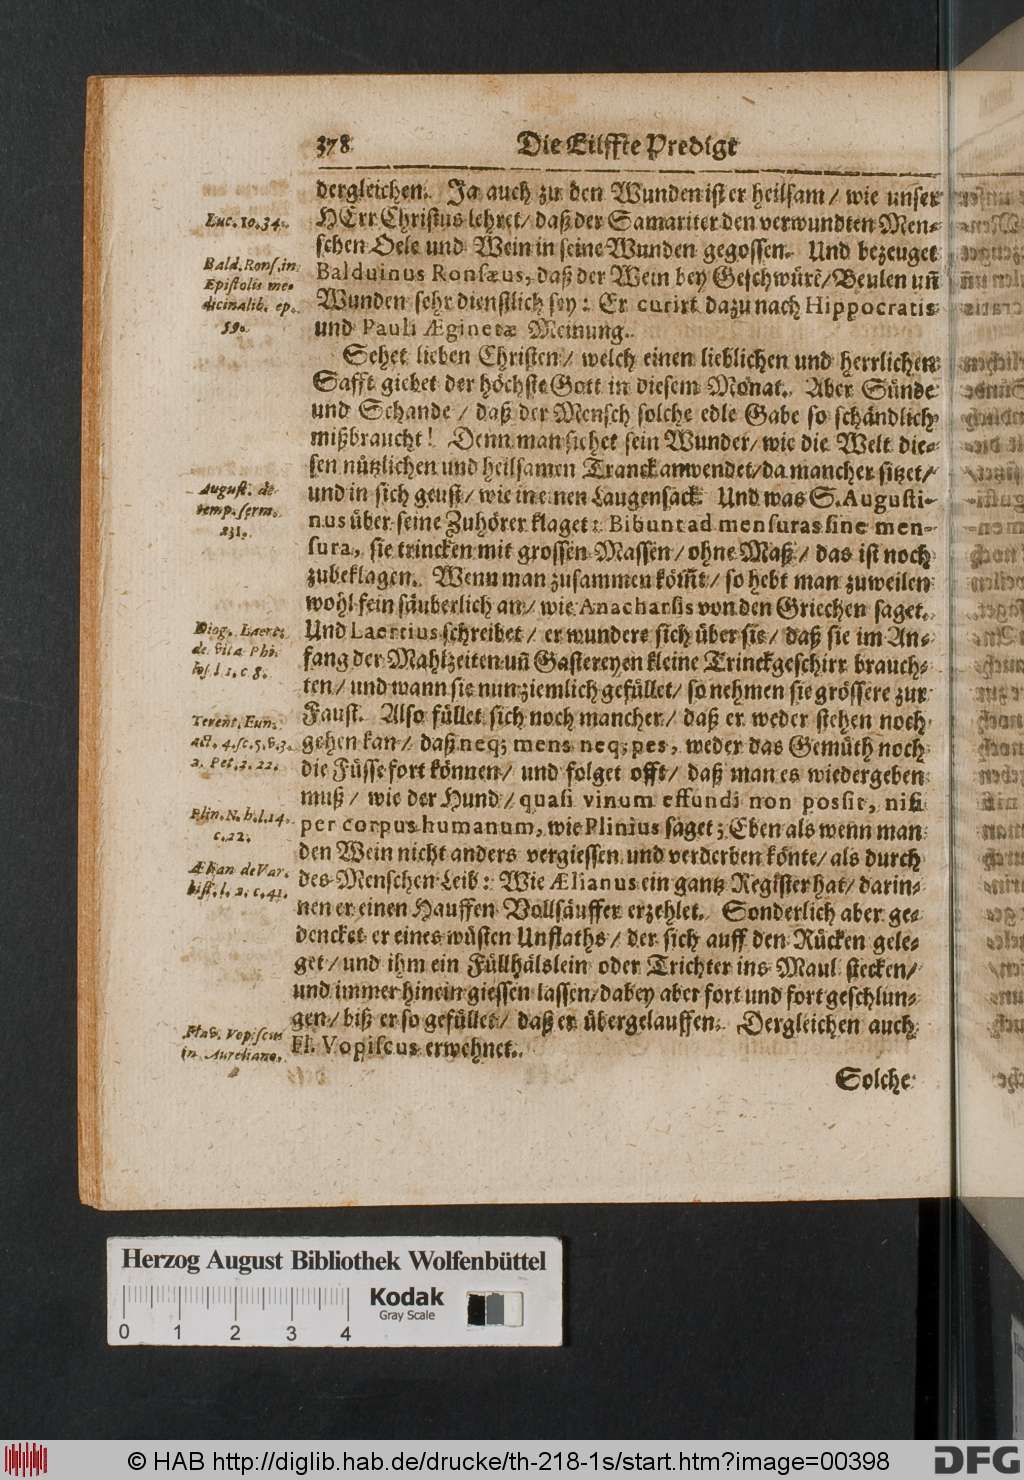 378 Die Eilffte Predigt
dergleichen. Ja auch zu den Wunden ist er heilsam / wie unser
Luc. 10. 34.
HErr Christus lehret / daß der Samariter den verwundten Men-
schen Oele und Wein in seine Wunden gegossen. Und bezeuget
Bald. Rons. in
Epistolis me-
dicinalib. ep.
59.
Balduinus Ronsæus, daß der Wein bey Geschwürẽ / Beulen uñ
Wunden sehr dienstlich sey: Er curirt dazu nach Hippocratis
und Pauli Æginetæ Meinung.
Sehet lieben Christen / welch einen lieblichen und herrlichen
Safft giebet der höchste Gott in diesem Monat. Aber Sünde
und Schande / daß der Mensch solche edle Gabe so schändlich
mißbraucht! Denn man sihet sein Wunder / wie die Welt die-
sen nützlichen und heilsamen Tranck anwendet / da mancher sitzet /
August. de
temp. serm.
231.
und in sich geust / wie in einen Laugensack. Und was S. Augusti-
nus über seine Zuhörer klaget: Bibunt ad mensuras sine men-
sura, sie trincken mit grossen Massen / ohne Maß / das ist noch
zubeklagen. Wenn man zusammen köm̃t / so hebt man zuweilen
wohl fein säuberlich an / wie Anacharsis von den Griechen saget.
Diog. Laert.
de vita Phi-
los. l. 1. c. 8.
Und Laertius schreibet / er wundere sich über sie / daß sie im An-
fang der Mahlzeiten uñ Gastereyen kleine Trinckgeschirr brauch-
ten / und wann sie nun ziemlich gefüllet / so nehmen sie grössere zur
Terent. Eun.
act. 4. sc. 5. v. 3.
2. Pet. 2. 22.
Faust. Also füllet sich noch mancher / daß er weder stehen noch
gehen kan / daß neq; mens neq; pes, weder das Gemüth noch
die Füsse fort können / und folget offt / daß man es wiedergeben
muß / wie der Hund / quasi vinum effundi non possit, nisi
Plin. N. h. l. 14.
c. 22.
per corpus humanum, wie Plinius saget; Eben als wenn man
den Wein nicht anders vergiessen und verderben könte / als durch
Ælian de Var.
hist. l. 2. c. 41.
des Menschen Leib: Wie Ælianus ein gantz Register hat / darin-
nen er einen Hauffen Vollsäuffer erzehlet. Sonderlich aber ge-
dencket er eines wüsten Unflaths / der sich auff den Rücken gele-
get / und ihm ein Füllhälslein oder Trichter ins Maul stecken /
und immer hinein giessen lassen / dabey aber fort und fort geschlun-
gen / biß er so gefüllet / daß er übergelauffen. Dergleichen auch
Flav. Vopiscus
in Aureliano.
Fl. Vopiscus erwehnet.
Solche
Herzog August Bibliothek Wolfenbüttel
Kodak
Gray Scale
0 1 2 3 4
© HAB http://diglib.hab.de/drucke/th-218-1s/start.htm?image=00398
DFG